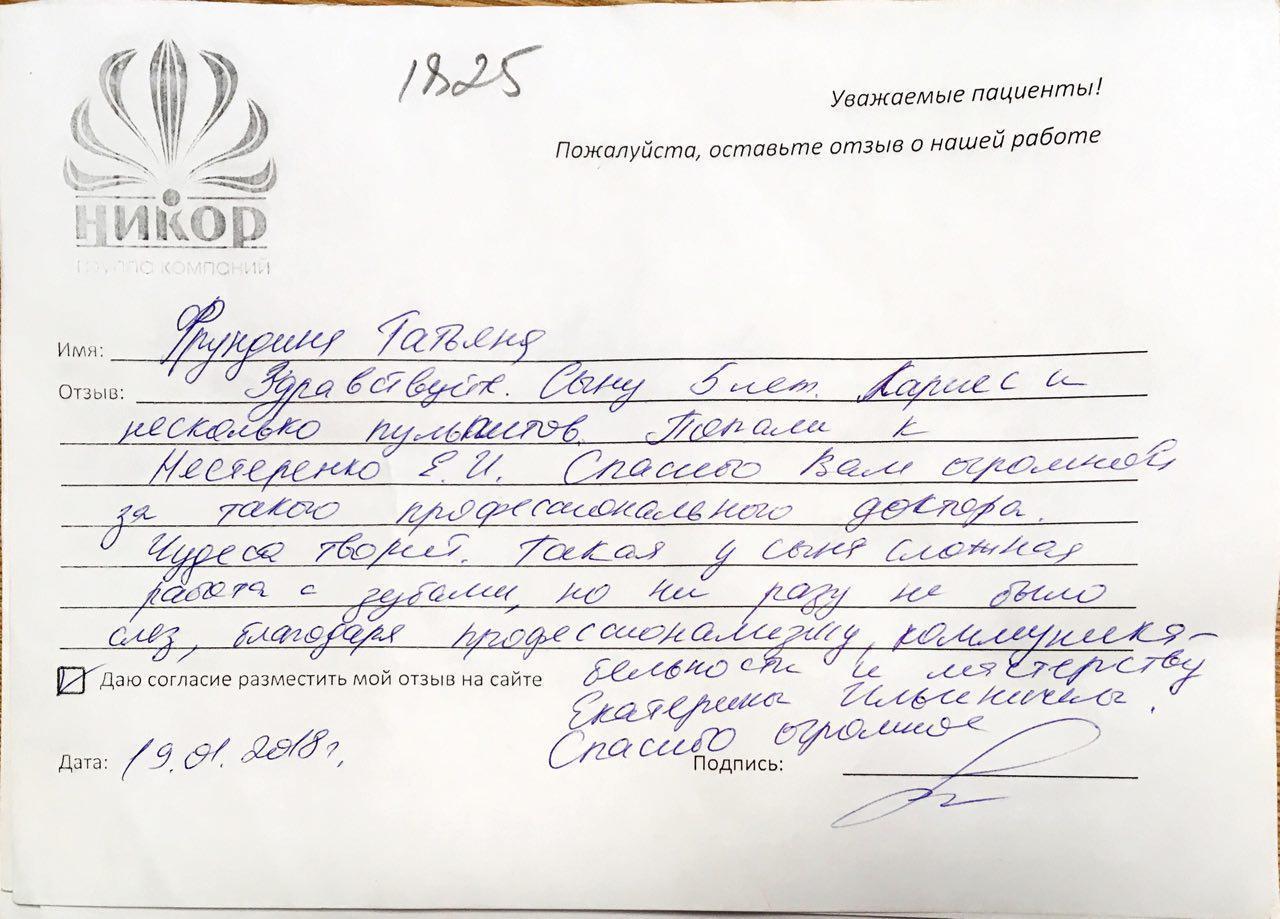 1825
Уважаемые пациенты!
Пожалуйста, оставьте отзыв о нашей работе
НИКОР
группа компаний
Имя: Фрундина Татьяна
Отзыв: Здравствуйте. Сыну 5 лет. Кариес и
несколько пульпитов. Попали к
Нестеренко Е.И. Спасибо Вам огромное
за такого профессионального доктора.
Чудеса творит. Такая у сына сложная
работа с зубами, но ни разу не было
слез, благодаря профессионализму, коммуника-
бельности и мастерству
Даю согласие разместить мой отзыв на сайте
Екатерины Ильиничны.
Спасибо огромное
Дата: 19.01.2018г.
Подпись: